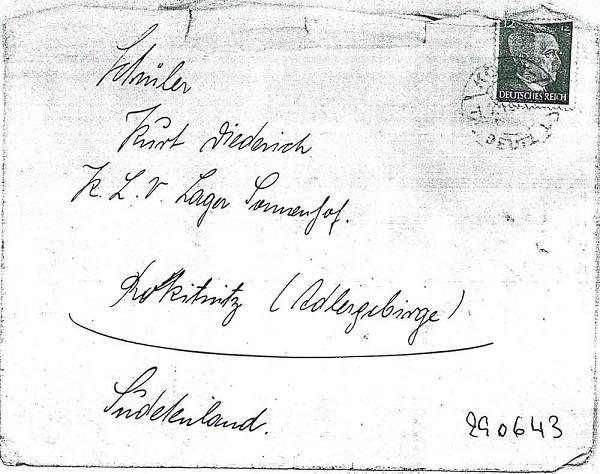 12 12
DEUTSCHES REICH
Schüler
Kurt Diederich
K. L. V. Lager Sonnenhof.
Rokitnitz (Adlergebirge)
Sudetenland.
290643